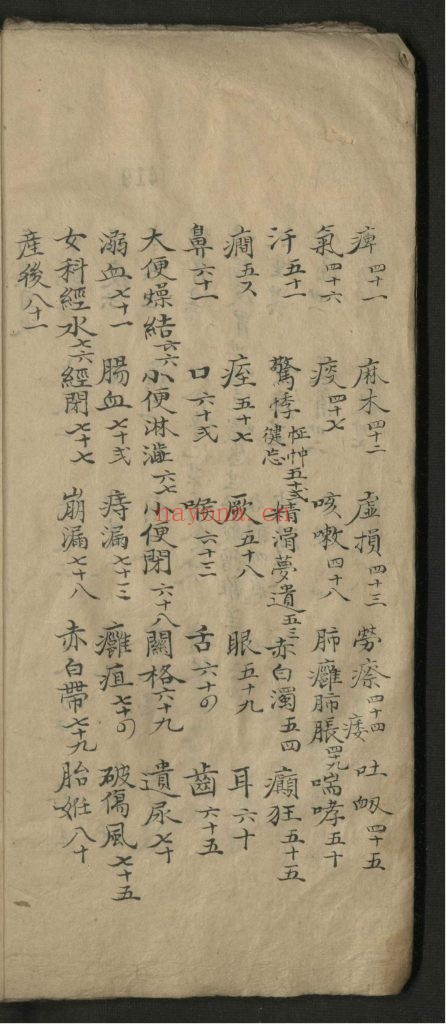 痺四十一 麻木四十二 虛損四十三 勞瘵四十四 吐衂四十五
氣四十六 痰四十七 咳嗽四十八 肺癰肺脹痿四十九 喘哮五十
汗五十一 驚悸怔忡健忘五十弍 精滑夢遺五三 赤白濁五四 癲狂五十五
癎五六 痓五十七 厥五十八 眼五十九 耳六十
鼻六十一 口六十弍 喉六十三 舌六十四 齒六十五
大便燥結六六 小便淋澁六七 小便閉六十八 關格六十九 遺尿七十
溺血七十一 腸血七十弍 痔漏七十三 癰疽七十四 破傷風七十五
女科經水七六 經閉七十七 崩漏七十八 赤白帶七十九 胎姙八十
産後八十一